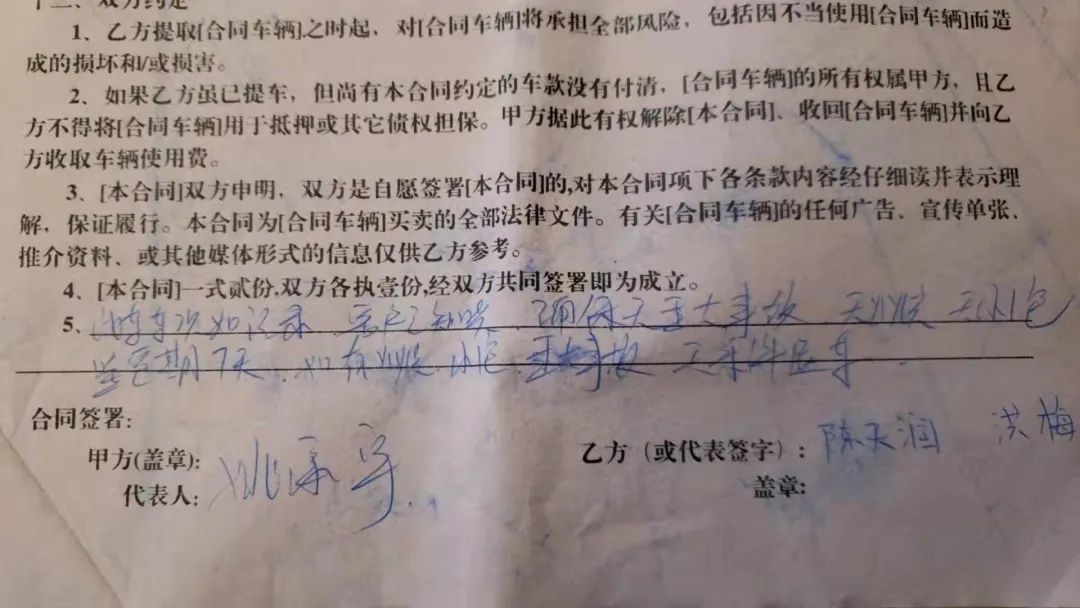 十二、双方约定
1、乙方提取[合同车辆]之时起，对[合同车辆]将承担全部风险，包括因不当使用[合同车辆]而造
成的损坏和/或损害。
2、如果乙方虽已提车，但尚有本合同约定的车款没有付清，[合同车辆]的所有权属甲方，且乙
方不得将[合同车辆]用于抵押或其它债权担保。甲方据此有权解除[本合同]、收回[合同车辆]并向乙
方收取车辆使用费。
3、[本合同]双方申明，双方是自愿签署[本合同]的,对本合同项下各条款内容经仔细读并表示理
解，保证履行。本合同为[合同车辆]买卖的全部法律文件。有关[合同车辆]的任何广告、宣传单张、
推介资料、或其他媒体形式的信息仅供乙方参考。
4、[本合同]一式贰份,双方各执壹份,经双方共同签署即为成立。
5、记录 客户已知晓 确保无重大事故 无火烧 无水泡
7天 如有火烧 水泡 重大事故 无条件退车
合同签署:
甲方(盖章):
代表人:
乙方（或代表签字）: 陈天润 洪梅
盖章: